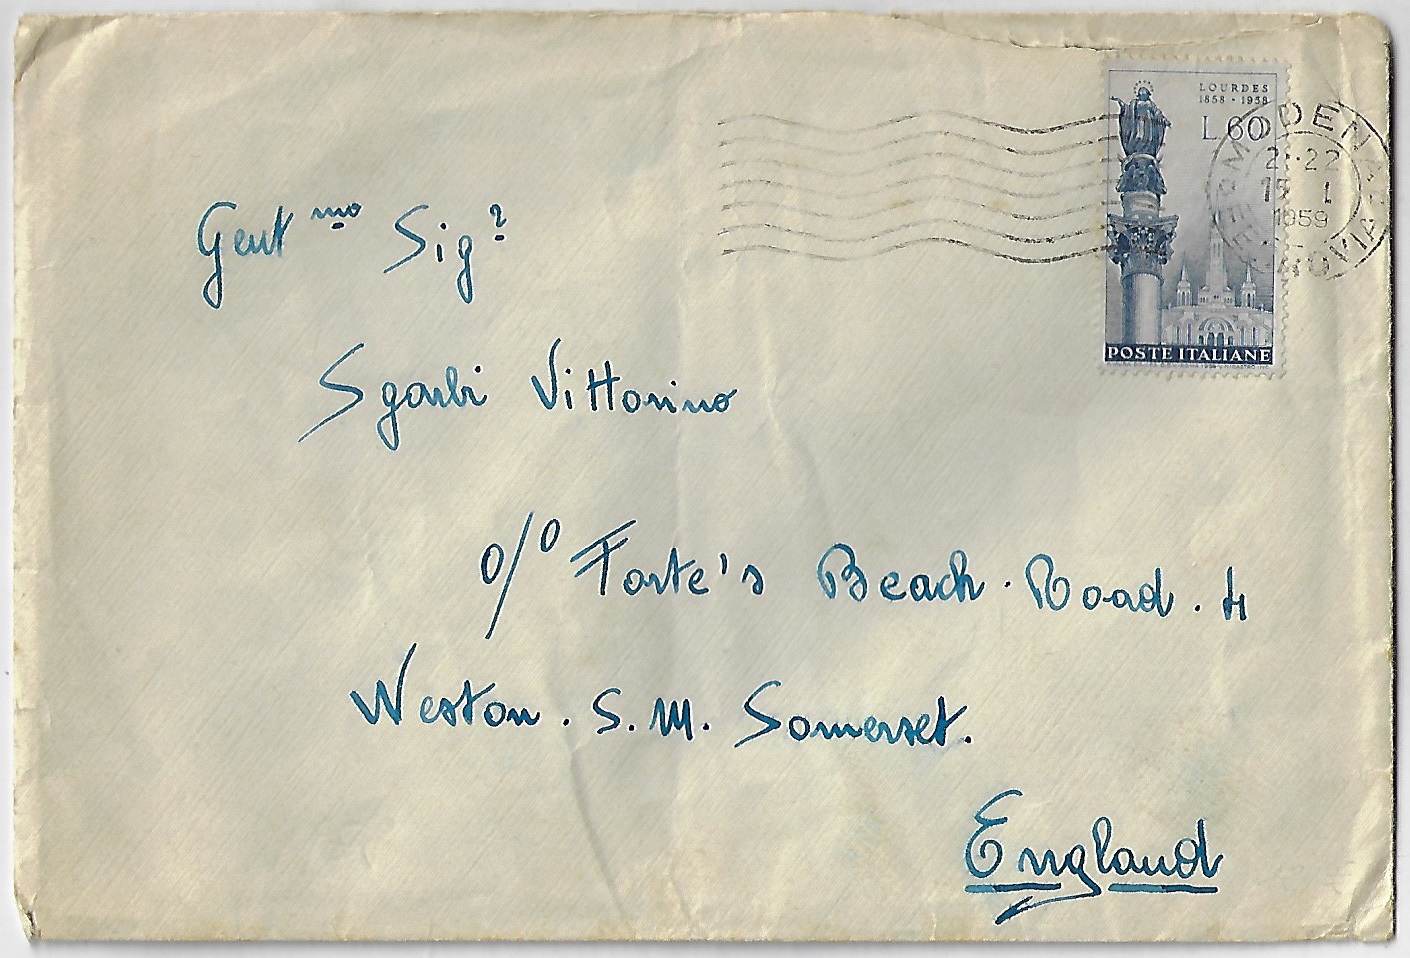 LOURDES
1858 - 1958
L.60
POSTE ITALIANE
MODENA
FERROVIA
21-22
1
1959
Gent mo Sig r
Sgarbi Vittorino
c/o Forte's Beach. Road. 4
Weston. S. M. Somerset.
England